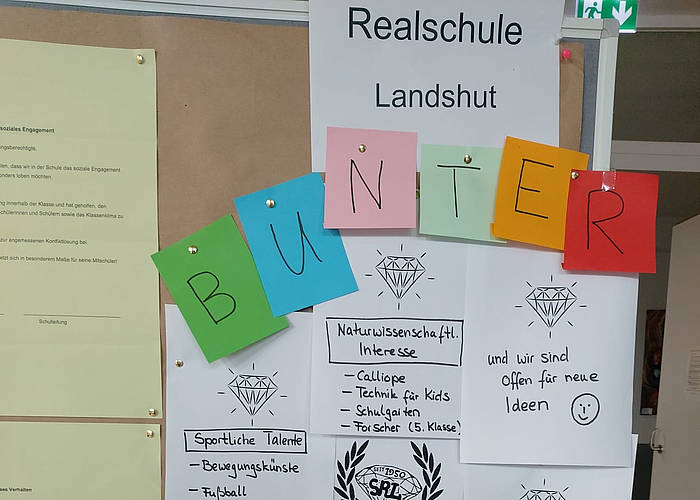 Realschule
Landshut
BUNTER
soziales Engagement
len, dass wir in der Schule das soziale Engagement
onders loben möchten.
ng innerhalb der Klasse und hat geholfen, den
chülerinnen und Schülern sowie das Klassenklima zu
zur angemessenen Konfliktlösung bei.
etzt sich in besonderem Maße für seine Mitschüler/
Schulleitung
es Verhalten
Sportliche Talente
- Bewegungskünste
- Fußball
Naturwissenschaftl.
Interesse
- Calliope
- Technik für Kids
- Schulgarten
- Forscher (5. Klasse)
SEIT 1950
SRL
und wir sind
Offen für neue
Ideen